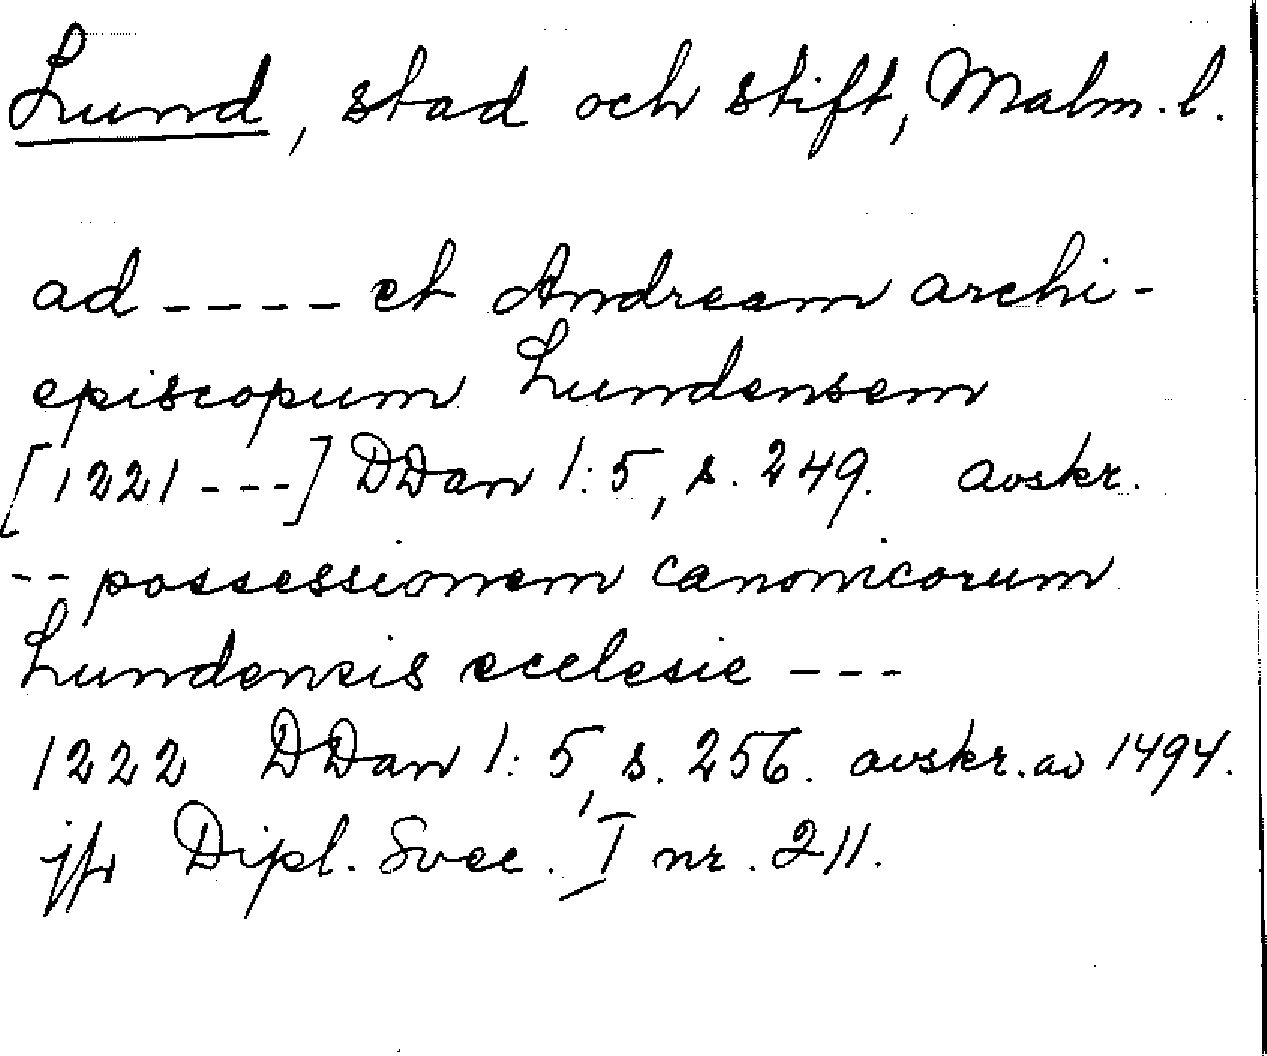 Lund, stad och stift, Malm. l.
ad ---- et Andream archi-
episcopum Lundensem
[1221 ---] DDan 1:5, s. 249. avskr.
-- possessionem canonicorum
Lundensis ecclesie ---
1222 DDan 1:5, s. 256. avskr. av 1494.
jfr Dipl. Svec. I nr. 211.